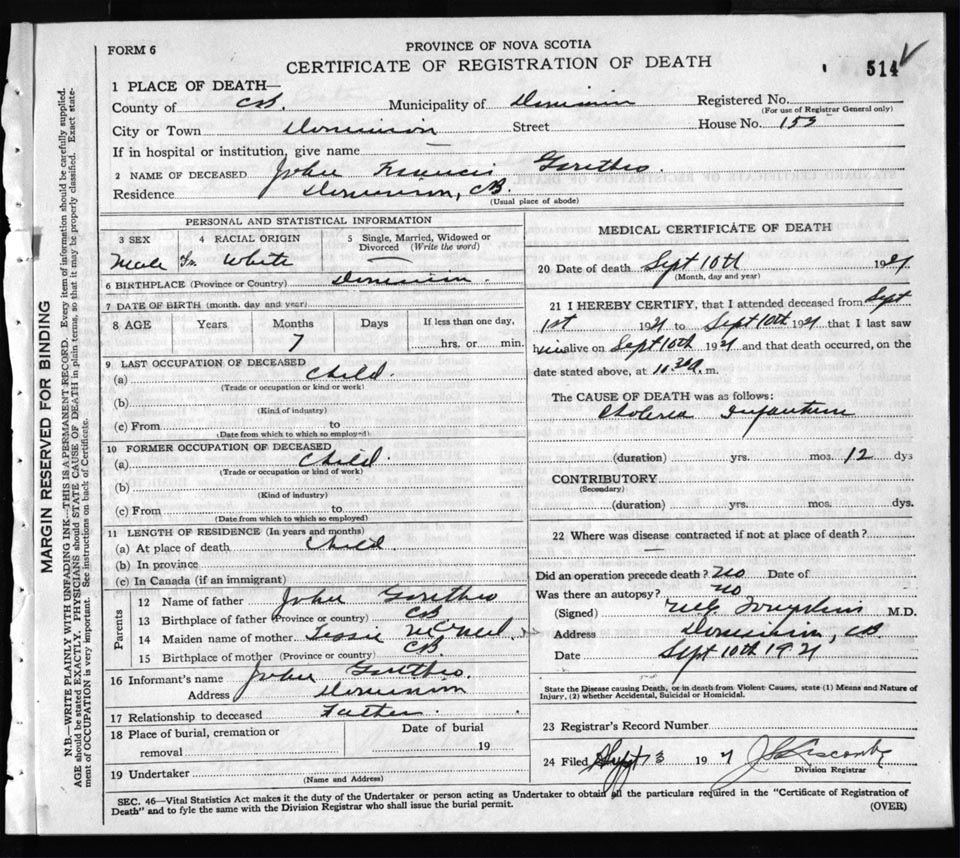 FORM 6
PROVINCE OF NOVA SCOTIA
CERTIFICATE OF REGISTRATION OF DEATH
514
1 PLACE OF DEATH—
County of CB. Municipality of Dominion Registered No.
(For use of Registrar General only)
City or Town Dominion Street House No. 153
If in hospital or institution, give name
2 NAME OF DECEASED John Francis
Residence Dominion, CB.
(Usual place of abode)
PERSONAL AND STATISTICAL INFORMATION
3 SEX 4 RACIAL ORIGIN 5 Single, Married, Widowed or Divorced (Write the word)
Male White —
6 BIRTHPLACE (Province or Country) Dominion
7 DATE OF BIRTH (month, day and year)
8 AGE Years Months Days If less than one day,
7 hrs. or min.
9 LAST OCCUPATION OF DECEASED
(a) Child.
(Trade or occupation or kind or work)
(b)
(Kind of industry)
(c) From to
(Date from which to which so employed)
10 FORMER OCCUPATION OF DECEASED
(a) Child.
(Trade or occupation or kind of work)
(b)
(Kind of industry)
(c) From to
(Date from which to which so employed)
11 LENGTH OF RESIDENCE (In years and months)
(a) At place of death Child.
(b) In province
(c) In Canada (if an immigrant)
Parents
12 Name of father John
13 Birthplace of father (Province or country) CB
14 Maiden name of mother Tessie McNeil.
15 Birthplace of mother (Province or country) CB.
16 Informant's name John
Address Dominion
17 Relationship to deceased Father.
18 Place of burial, cremation or removal Date of burial
19
19 Undertaker
(Name and Address)
MEDICAL CERTIFICATE OF DEATH
20 Date of death Sept 10th 1921
(Month, day and year)
21 I HEREBY CERTIFY, that I attended deceased from Sept
1st 1921 to Sept 10th 1921 that I last saw
him alive on Sept 10th 1921 and that death occurred, on the
date stated above, at 10.30 a. m.
The CAUSE OF DEATH was as follows:
Cholera Infantum
(duration) yrs. mos. 12 dys
CONTRIBUTORY
(Secondary)
(duration) yrs. mos. dys.
22 Where was disease contracted if not at place of death?
—
Did an operation precede death? No Date of
Was there an autopsy? No
(Signed) M.D.
Address Dominion, CB
Date Sept 10th 1921
State the Disease causing Death, or in death from Violent Causes, state (1) Means and Nature of
Injury, (2) whether Accidental, Suicidal or Homicidal.
23 Registrar's Record Number
24 Filed Sept 13 19
Division Registrar
SEC. 46—Vital Statistics Act makes it the duty of the Undertaker or person acting as Undertaker to obtain all the particulars required in the "Certificate of Registration of
Death" and to fyle the same with the Division Registrar who shall issue the burial permit.
(OVER)
MARGIN RESERVED FOR BINDING
N.B.—WRITE PLAINLY WITH UNFADING INK—THIS IS A PERMANENT RECORD. Every item of information should be carefully supplied.
AGE should be stated EXACTLY. PHYSICIANS should STATE CAUSE OF DEATH in plain terms, so that it may be properly classified. Exact state-
ment of OCCUPATION is very important. See instructions on back of Certificate.